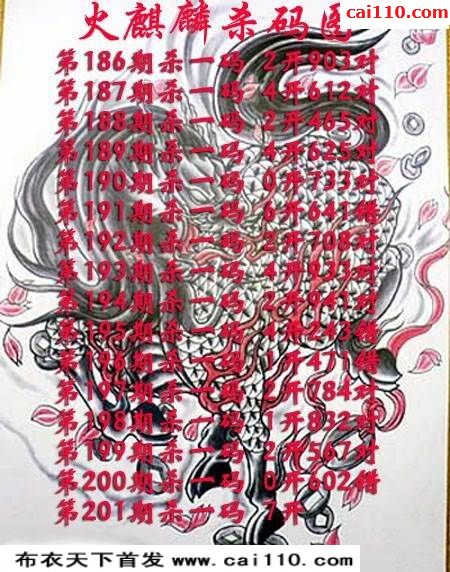 cai110.com
火麒麟杀码图
第186期杀一码 2开903对
第187期杀一码 4开612对
第188期杀一码 2开465对
第189期杀一码 4开625对
第190期杀一码 0开733对
第191期杀一码 6开641错
第192期杀一码 2开708对
第193期杀一码 4开933对
第194期杀一码 2开941对
第195期杀一码 4开243错
第196期杀一码 1开471错
第197期杀一码 2开784对
第198期杀一码 1开832对
第199期杀一码 2开567对
第200期杀一码 0开602错
第201期杀一码 7开
布衣天下首发 www.cai110.com